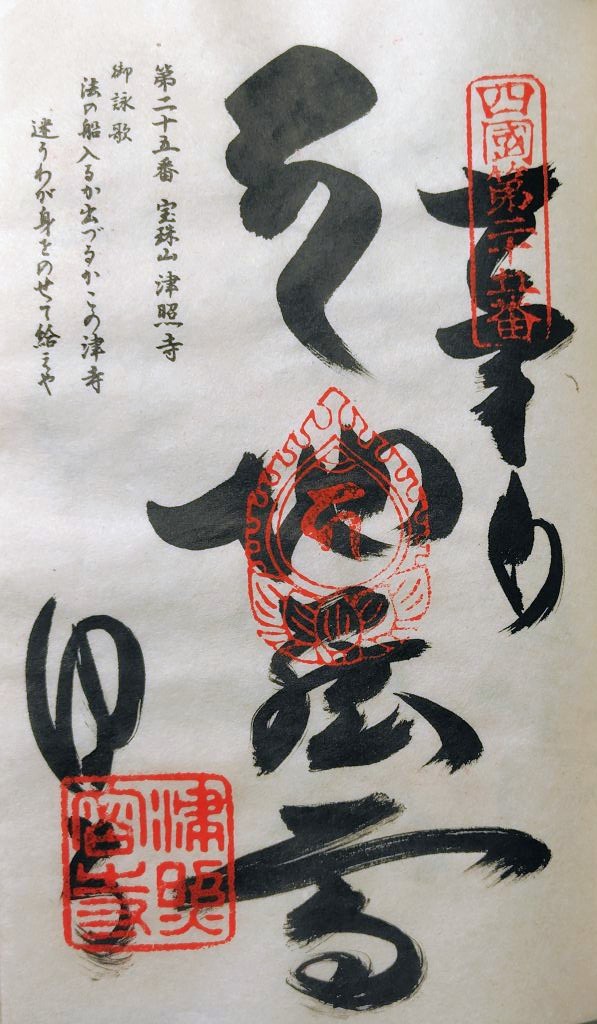 四國第二十五番
地蔵尊
第二十五番 宝珠山 津照寺
御詠歌
法の船入るか出づるかこの津寺
迷うわが身をのせて給えや
津照密寺